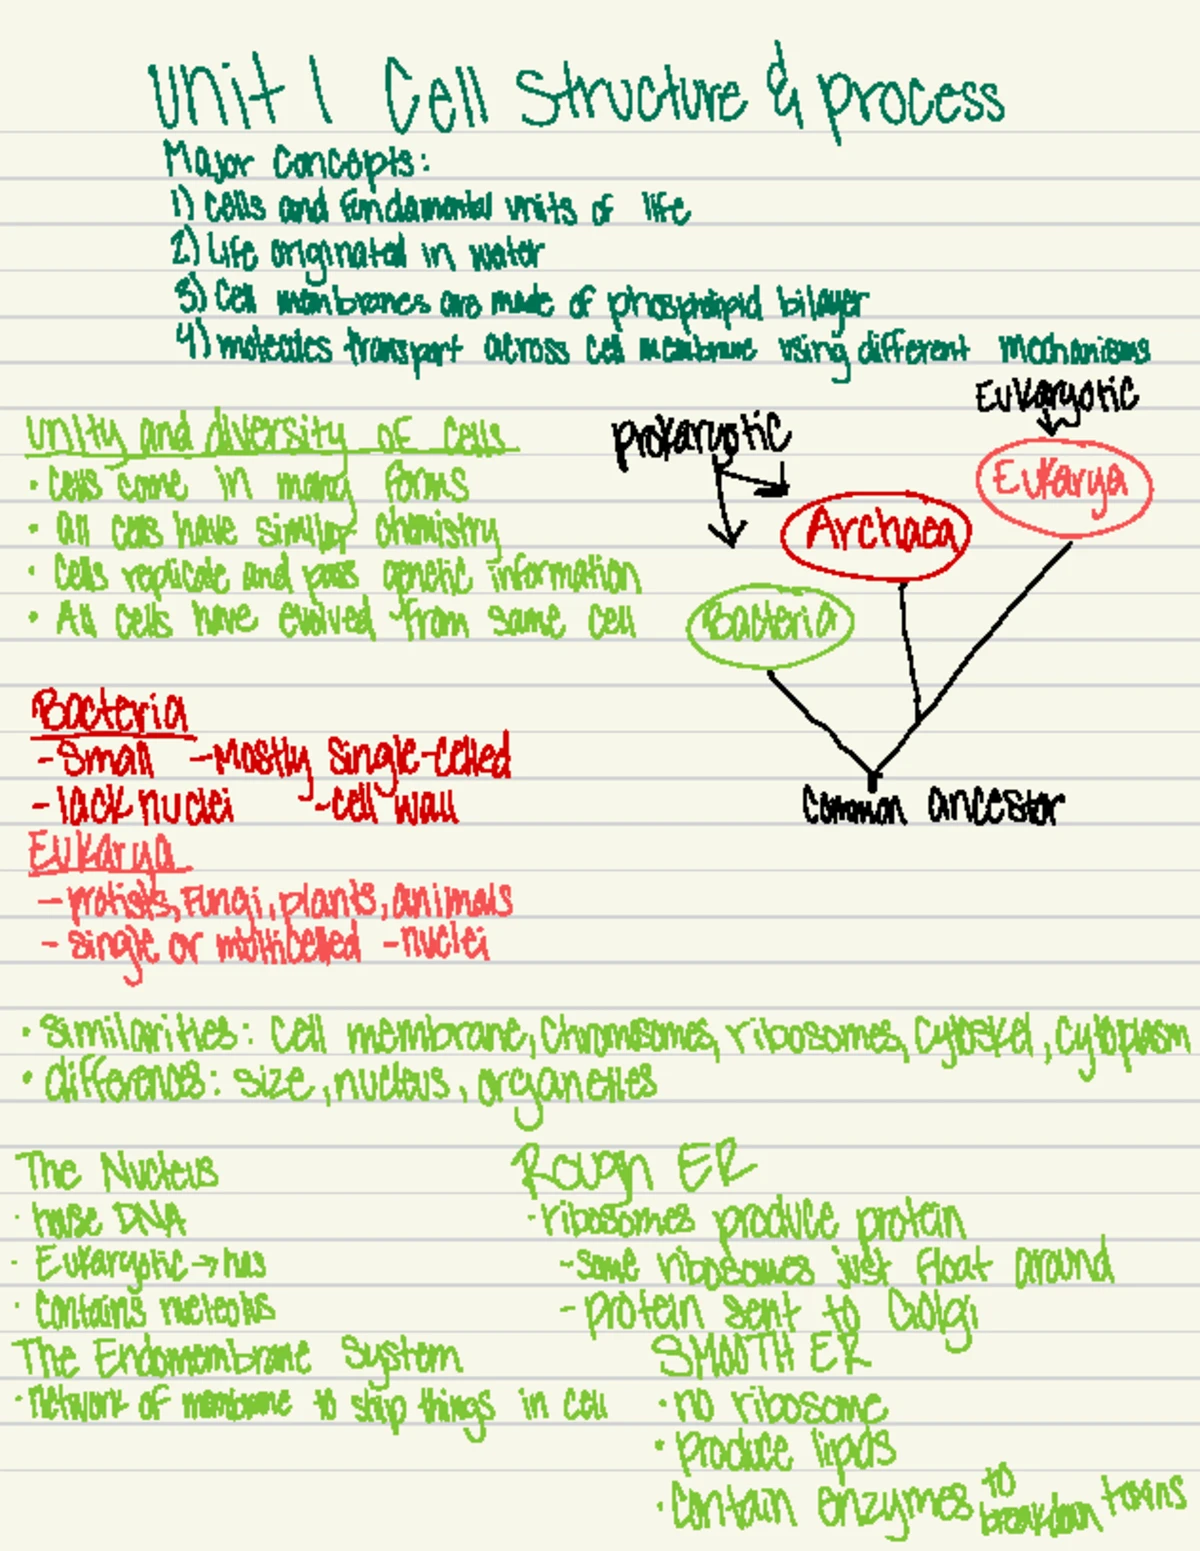 Unit 1 Cell Structure & process
Major Concepts:
1) Cells and fundamental units of life
2) Life originated in water
3) Cell membranes are made of phospholipid bilayer
4) molecules transport across cell membrane using different mechanisms
Unity and diversity of cells
• Cells come in many forms
• All cells have similar chemistry
• Cells replicate and pass genetic information
• All cells have evolved from same cell
Prokaryotic
Eukaryotic
Eukarya
Archaea
Bacteria
Common ancestor
Bacteria
-Small -Mostly single-celled
-lack nuclei -cell wall
Eukarya
-protists, Fungi, plants, animals
-single or multicelled -nuclei
• Similarities: Cell membrane, Chromosomes, ribosomes, Cytoskel, Cytoplasm
• differences: size, nucleus, organelles
The Nucleus
• house DNA
• Eukaryotic → has
• Contains nucleolus
The Endomembrane System
• network of membrane to ship things in cell
Rough ER
-ribosomes produce protein
-some ribosomes just float around
-protein sent to Golgi
SMOOTH ER
• no ribosome
• produce lipids
• contain enzymes to breakdown toxins